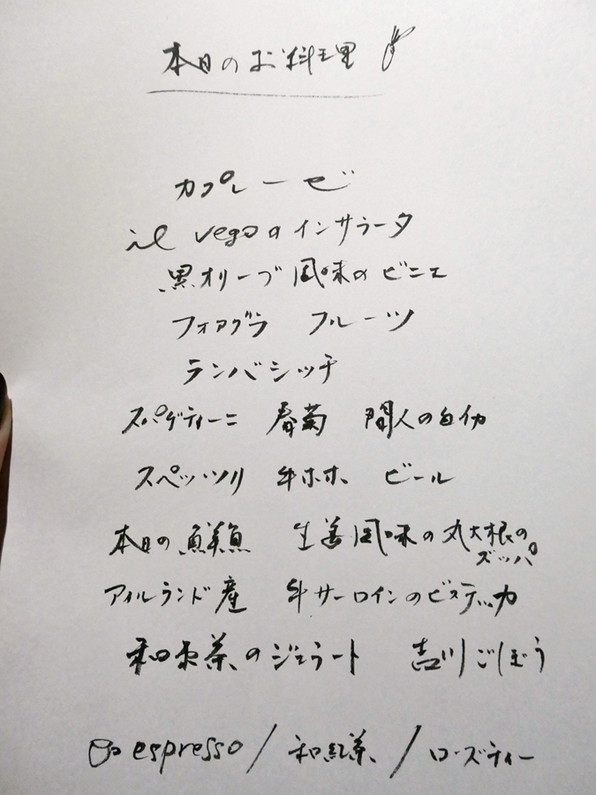 本日のお料理
カプレーゼ
il vegoのインサラータ
黒オリーブ風味のビニエ
フォアグラ フルーツ
ランバシッチ
スパゲティーニ 春菊 間人の白イカ
スペッツリ 牛ホホ ビール
本日の鮮魚 生姜風味の丸大根の
ズッパ
アイルランド産 牛サーロインのビステッカ
和紅茶のジェラート 吉川ごぼう
espresso / 和紅茶 / ローズティー